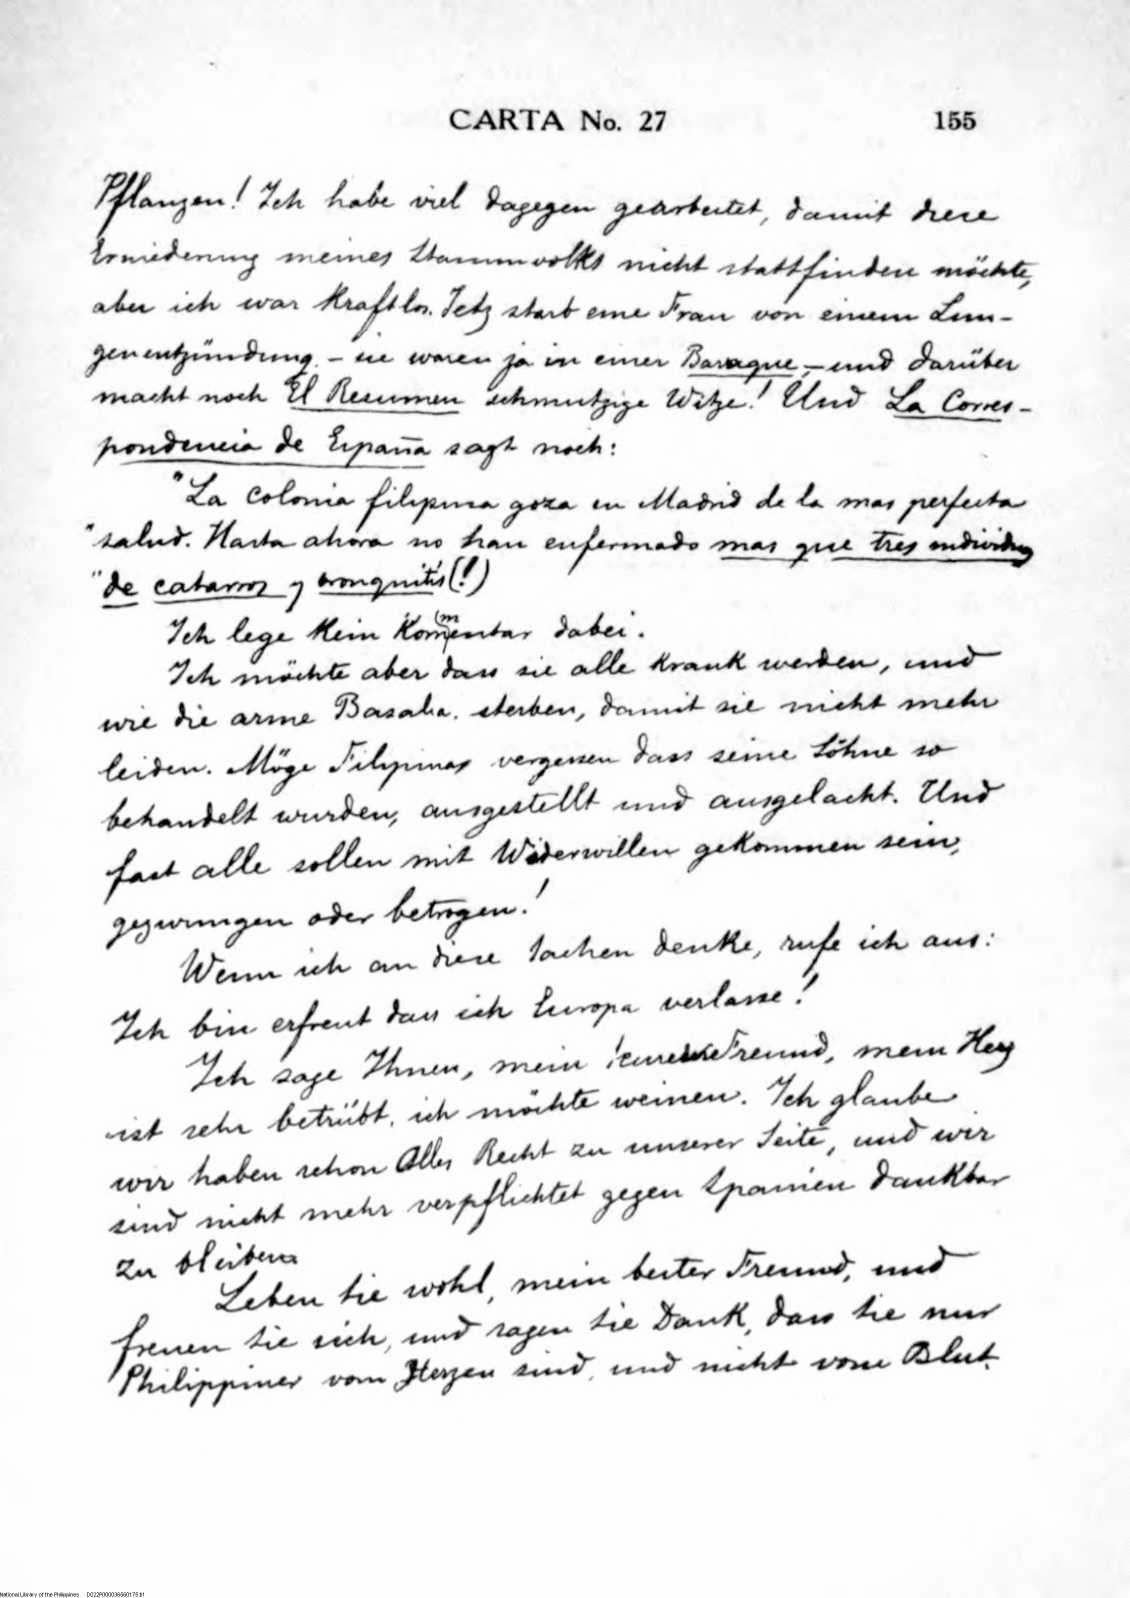 CARTA No. 27 155
Pflanzen! Ich habe viel dagegen gearbeitet, damit diese
Erniederung meines Stammvolks nicht stattfinden möchte,
aber ich war kraftlos. Jetz starb eine Frau von einem Lun-
genentzündung, – sie waren ja in einer Baraque, – und darüber
macht noch El Resumen schmutzige Witze! Und La Corres-
pondencia de España sagt noch:
"La colonia filipina goza en Madrid de la mas perfecta
"salud. Hasta ahora no han enfermado mas que tres individuos
"de catarros y bronquitis (!)
Ich lege kein Komentar dabei.
(m
Ich möchte aber dass sie alle krank werden, und
wie die arme Basalia sterben, damit sie nicht mehr
leiden. Möge Filipinas vergessen dass seine Söhne so
behandelt wurden, ausgestellt und ausgelacht. Und
fast alle sollen mit Widerwillen gekommen sein,
gezwungen oder betrogen!
Wenn ich an diese Sachen denke, rufe ich aus:
Ich bin erfreut dass ich Europa verlasse!
Ich sage Ihnen, mein Freund, mein Herz
ist sehr betrübt, ich möchte weinen. Ich glaube
wir haben schon Alles Recht zu unserer Seite, und wir
sind nicht mehr verpflichtet gegen Spanien dankbar
zu bleiben.
Leben Sie wohl, mein bester Freund, und
freuen Sie sich, und sagen Sie Dank, dass Sie nur
Philippiner vom Herzen sind, und nicht vom Blut.
National Library of the Philippines